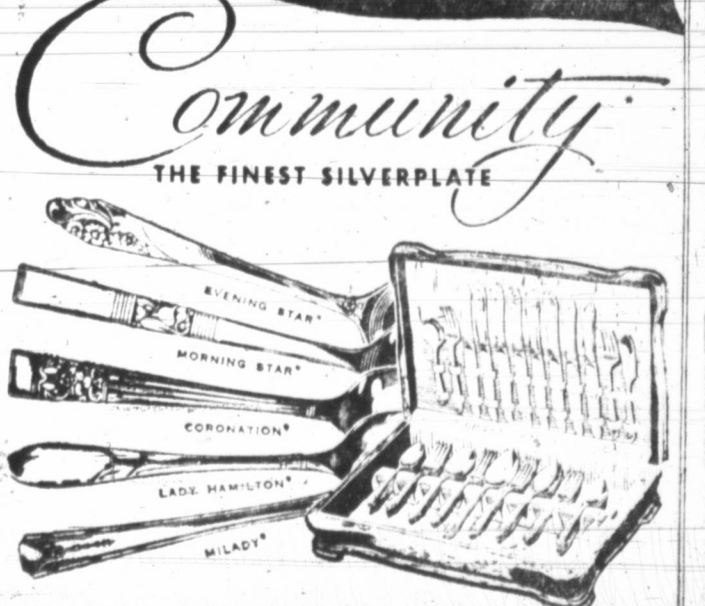 Community
THE FINEST SILVERPLATE
EVENING STAR*
MORNING STAR*
CORONATION*
LADY HAMILTON*
MILADY*